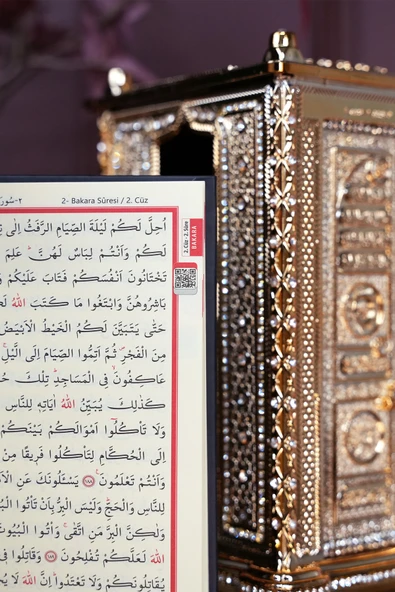 2- Bakara Sûresi / 2. Cüz
2. Cüz - 2. Sûre
BAKARA
اُحِلَّ لَكُمْ لَيْلَةَ الصِّيَامِ الرَّفَثُ اِلٰى
لَكُمْ وَاَنْتُمْ لِبَاسٌ لَهُنَّ عَلِمَ
تَخْتَانُونَ اَنْفُسَكُمْ فَتَابَ عَلَيْكُمْ
بَاشِرُوهُنَّ وَابْتَغُوا مَا كَتَبَ اللّٰهُ
حَتّٰى يَتَبَيَّنَ لَكُمُ الْخَيْطُ الْاَبْيَضُ
مِنَ الْفَجْرِ ثُمَّ اَتِمُّوا الصِّيَامَ اِلَى الَّيْلِ
عَاكِفُونَ فِى الْمَسَاجِدِ تِلْكَ
كَذٰلِكَ يُبَيِّنُ اللّٰهُ اٰيَاتِهٖ لِلنَّاسِ
وَلَا تَاْكُلُوا اَمْوَالَكُمْ بَيْنَكُمْ
اِلَى الْحُكَّامِ لِتَاْكُلُوا فَرِيقًا مِنْ
وَاَنْتُمْ تَعْلَمُونَ ﴿١٨٨﴾ يَسْـَٔلُونَكَ عَنِ
لِلنَّاسِ وَالْحَجِّ وَلَيْسَ الْبِرُّ بِاَنْ تَاْتُوا
وَلٰكِنَّ الْبِرَّ مَنِ اتَّقٰى وَاْتُوا الْبُيُوتَ
اللّٰهَ لَعَلَّكُمْ تُفْلِحُونَ ﴿١٨٩﴾ وَقَاتِلُوا فِى
يُقَاتِلُونَكُمْ وَلَا تَعْتَدُوا اِنَّ اللّٰهَ لَا